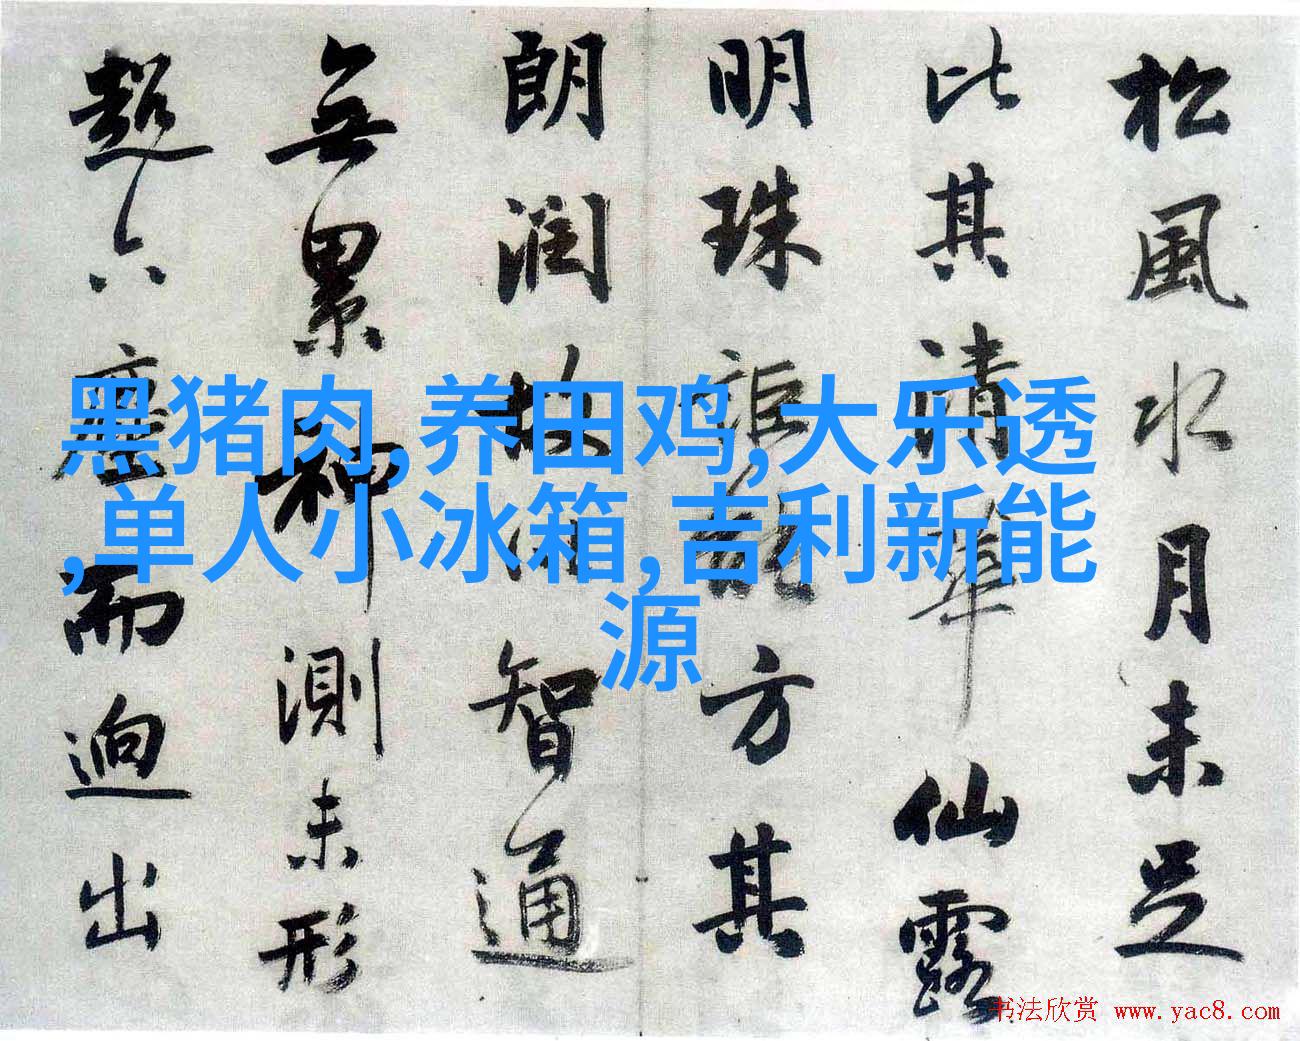 松風水月未足
比其清華仙露
明珠詎能方其
朗潤故以智通
無累神測未形
超六塵而迥出
黑猪肉,养田鸡,大乐透
,单人小冰箱,吉利新能
源
书法欣赏 www.yac8.com